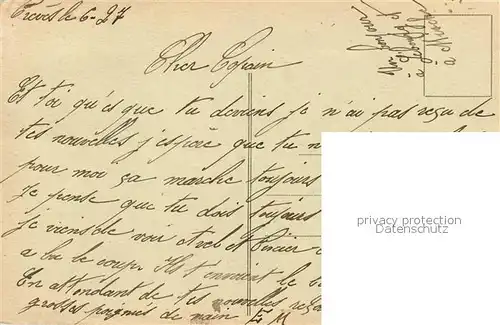 Trèves le 6-27
Un bonjour
à
à
Cher Copain
Et toi qu'es que tu deviens je n'ai pas reçu de
tes nouvelles j'espère que tu n
pour moi ça marche toujours
Je pense que tu dois toujours
je viens de voir et
a bu le coup. Ils t'envoient le
En attendant de tes nouvelles
grosses poignés de main E M
privacy protection
Datenschutz